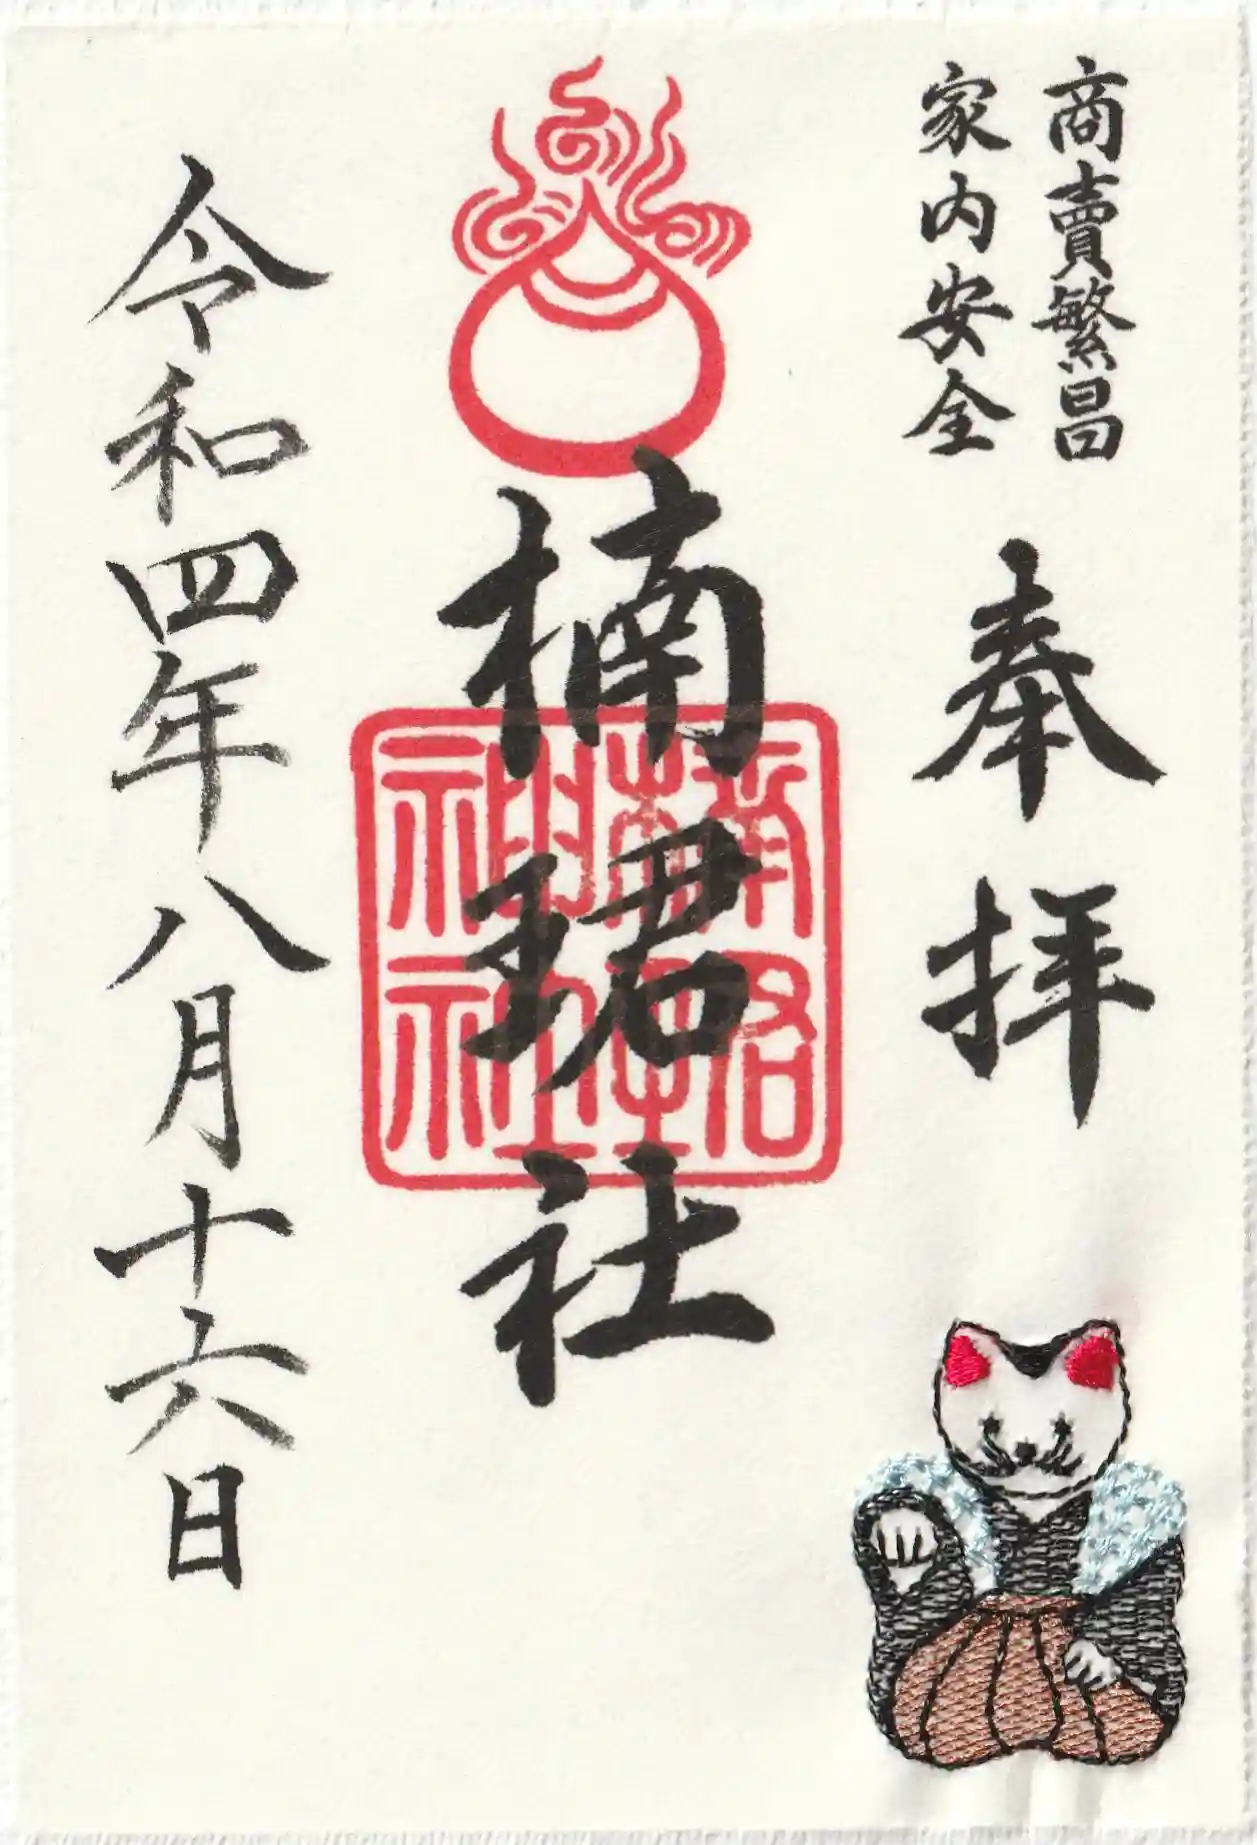 商賣繁昌
家内安全
奉拝
楠珺社
楠珺
神社
令和四年八月十六日